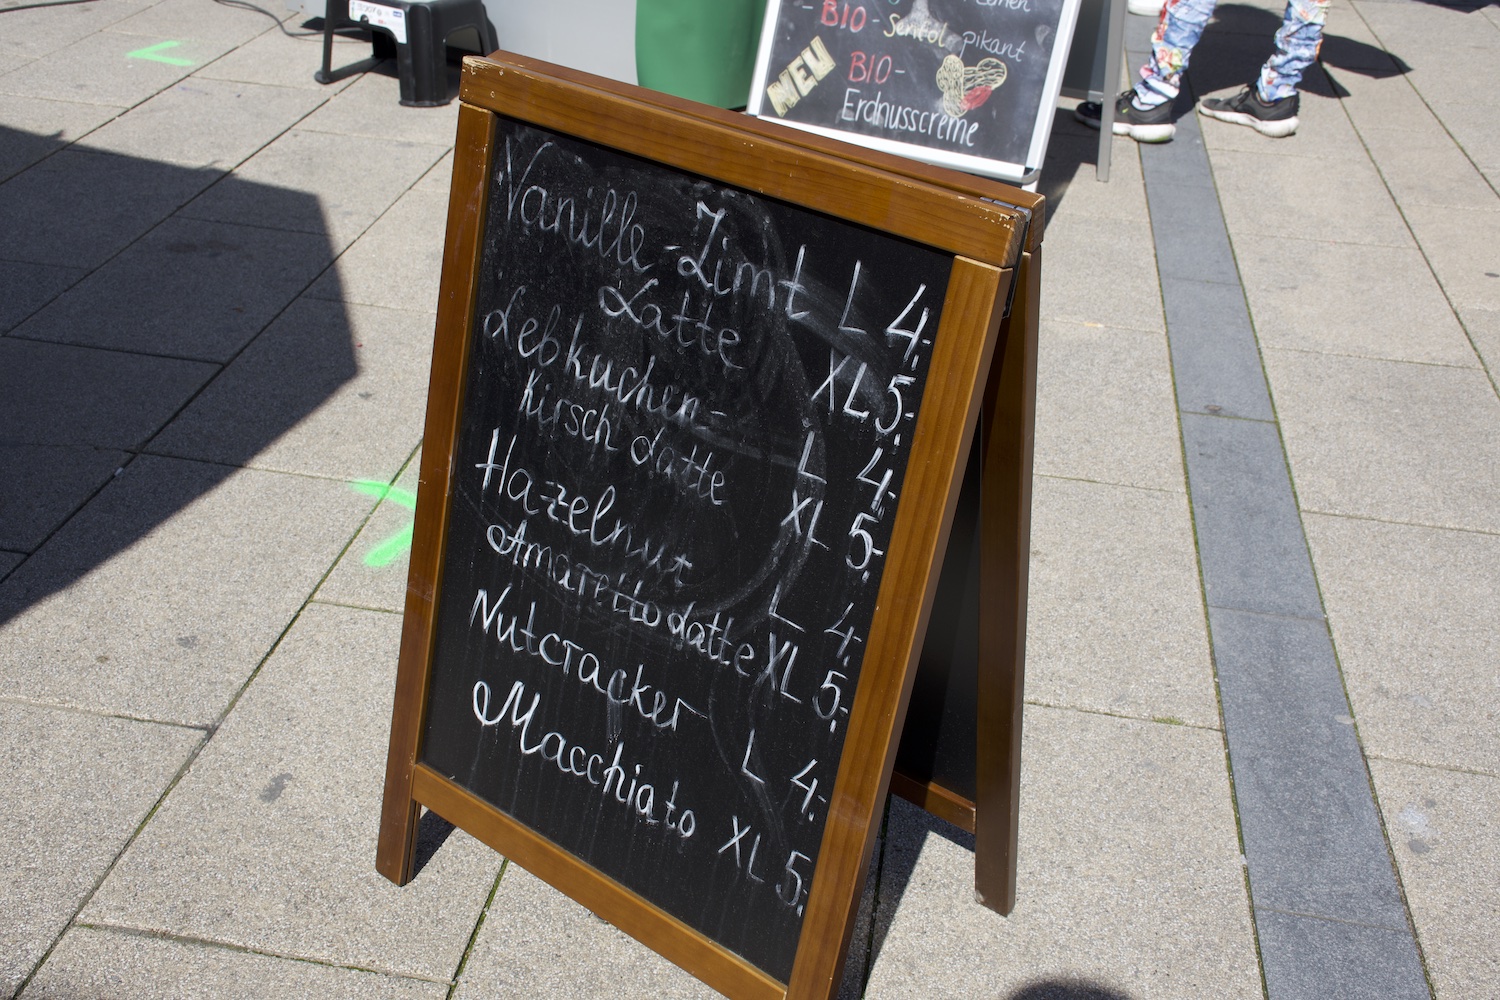 - BIO - Senföl pikant
NEU BIO-
Erdnusscreme
Vanille-Zimt L 4,-
Latte XL 5,-
Lebkuchen-
Kirsch Latte L 4,-
XL 5,-
Hazelnut
Amaretto Latte L 4,-
XL 5,-
Nutcracker
Macchiato L 4,-
XL 5,-